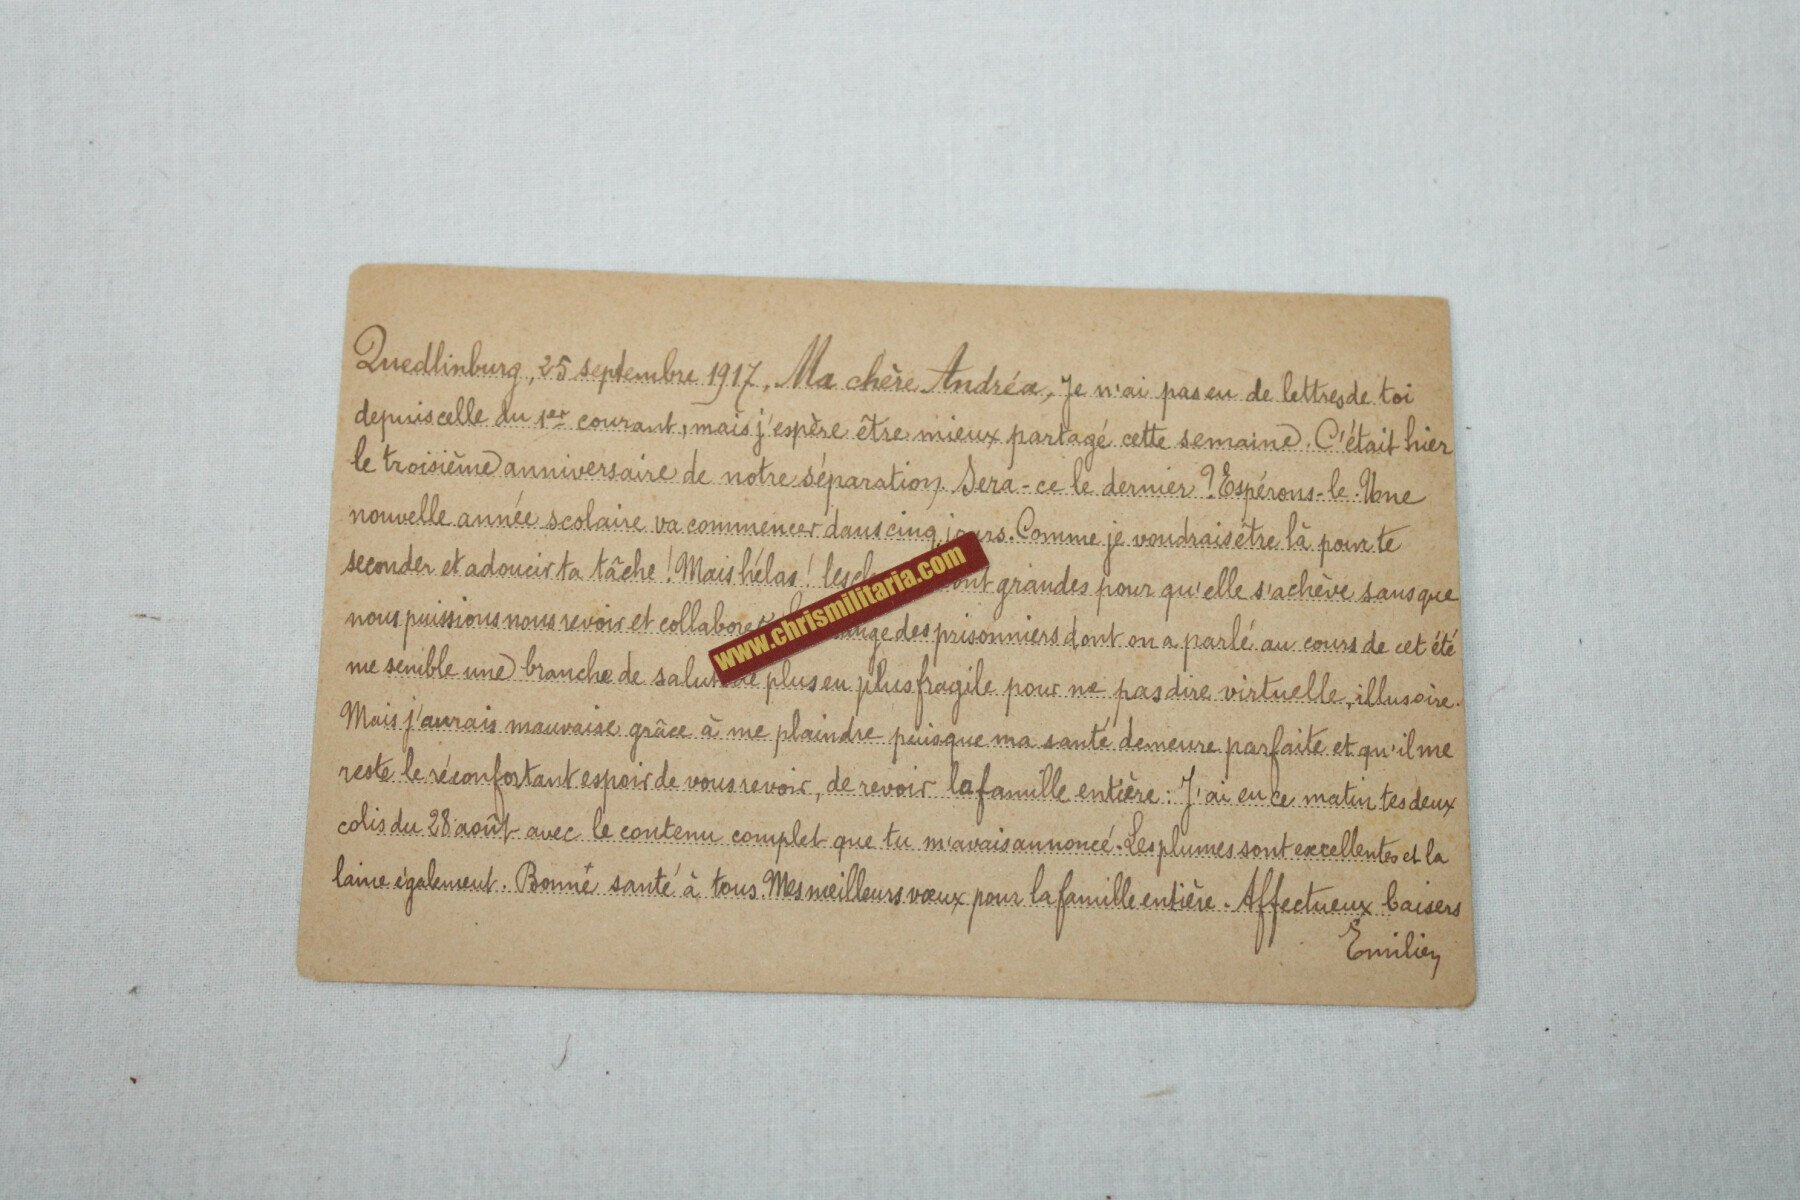 Quedlinburg, 25 septembre 1917, Ma chère Andréa, Je n'ai pas eu de lettres de toi
depuis celle du 1er courant, mais j'espère être mieux partagé cette semaine. C'était hier
le troisième anniversaire de notre séparation. Sera-ce le dernier ? Espérons-le. Une
nouvelle année scolaire va commencer dans cinq jours. Comme je voudrais être là pour te
seconder et adoucir ta tâche ! Mais hélas ! les grandes pour qu'elle s'achève sans que
nous puissions nous revoir et des prisonniers dont on a parlé au cours de cet été
me semble une branche de salut de plus en plus fragile pour ne pas dire virtuelle, illusoire.
Mais j'aurais mauvaise grâce à me plaindre puisque ma santé demeure parfaite et qu'il me
reste le réconfortant espoir de vous revoir, de revoir la famille entière : J'ai eu ce matin tes deux
colis du 28 août avec le contenu complet que tu m'avais annoncé. Les plumes sont excellentes et la
laine également. Bonne santé à tous. Mes meilleurs vœux pour la famille entière. Affectueux baisers
Emilien
www.chrismilitaria.com